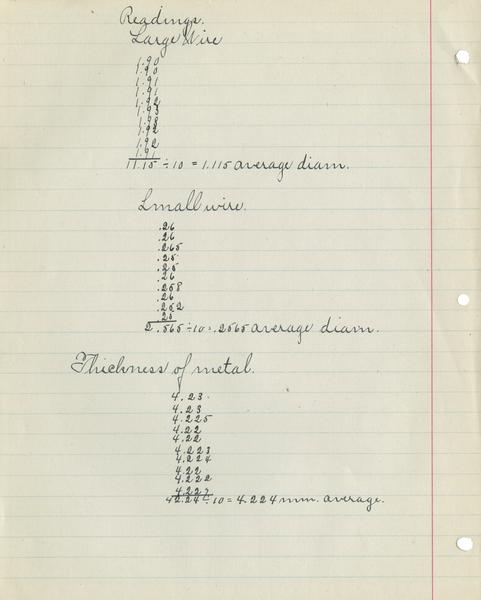 Readings.
Large Wire
1.90
1.90
1.91
1.91
1.92
1.93
1.92
1.92
1.91
11.15 ÷ 10 = 1.115 average diam.
Small wire.
.26
.26
.265
.25
.25
.26
.258
.26
.252
.25
2.565 ÷ 10 = .2565 average diam.
Thickness of metal.
4.23
4.23
4.225
4.22
4.22
4.223
4.224
4.22
4.222
4.227
42.24 ÷ 10 = 4.224 mm. average.